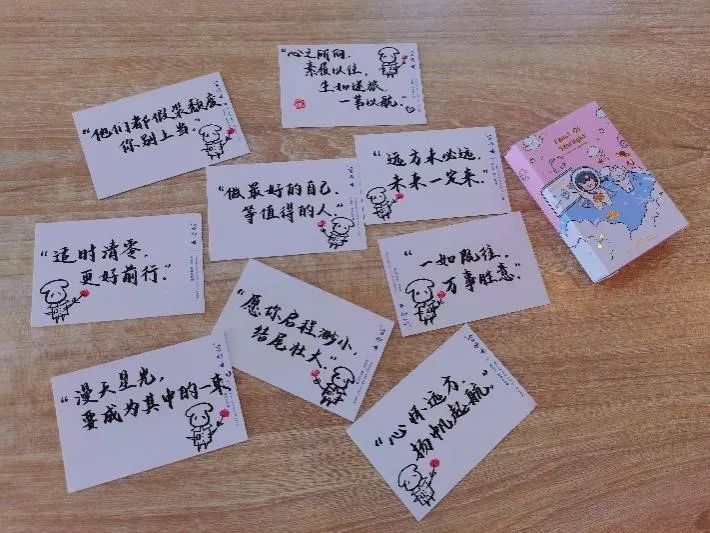 “心之所向，
素履以往，
生如逆旅，
一苇以航。”
“他们都假装颓废，
你别上当。”
“远方未必远，
未来一定来。”
“做最好的自己，
等值得的人。”
“适时清零，
更好前行。”
“一如既往，
万事胜意。”
“愿你启程渺小，
结尾壮大。”
“漫天星光，
要成为其中的一束”
“心怀远方，
扬帆起航。”